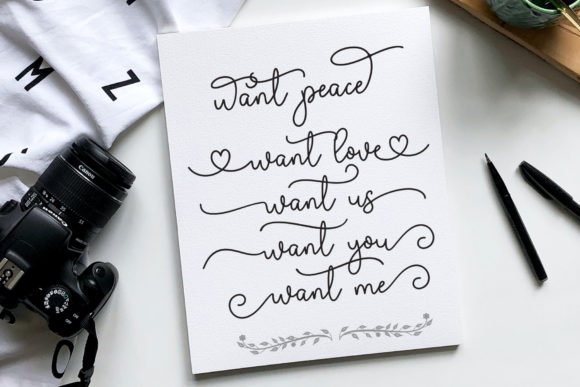 want peace
want love
want us
want you
want me
M
Z
Canon